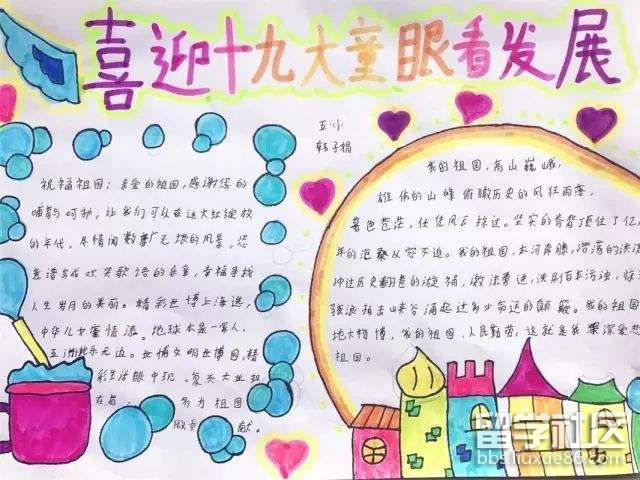 喜迎十九大童眼看发展
五(1)
祝福祖国:亲爱的祖国,感谢您的
哺育呵护,让我们可以在这大红绽放
的年代,尽情阅数广无垠的风景,您
是谱写成一首歌谱的乐章,幸福寻找
人生岁月的美丽。精彩世博上海滩,
中华儿女富情添。地球本是一家人,
五洲乐无边。世博文明世博园,精
彩生活眼中现。复兴大业
在肩,多为祖国
做贡献。
我的祖国,高山巍峨,
雄伟的山峰俯瞰历史的风狂雨落,
暮色苍茫,任凭风云掠过。坚实的脊背顶住了亿万
年的沧桑从容不迫。我的祖国,大河奔腾,浩荡的洪流
冲过历史翻卷的漩涡,激流勇进,洗刷百年污浊,惊
骇浪拍击峡谷涌起过多少命运的颠簸。我的祖国
地大物博,我的祖国,人民勤劳,这就是我深爱恋
祖国。
留学社区
bbs.liuxue86.com